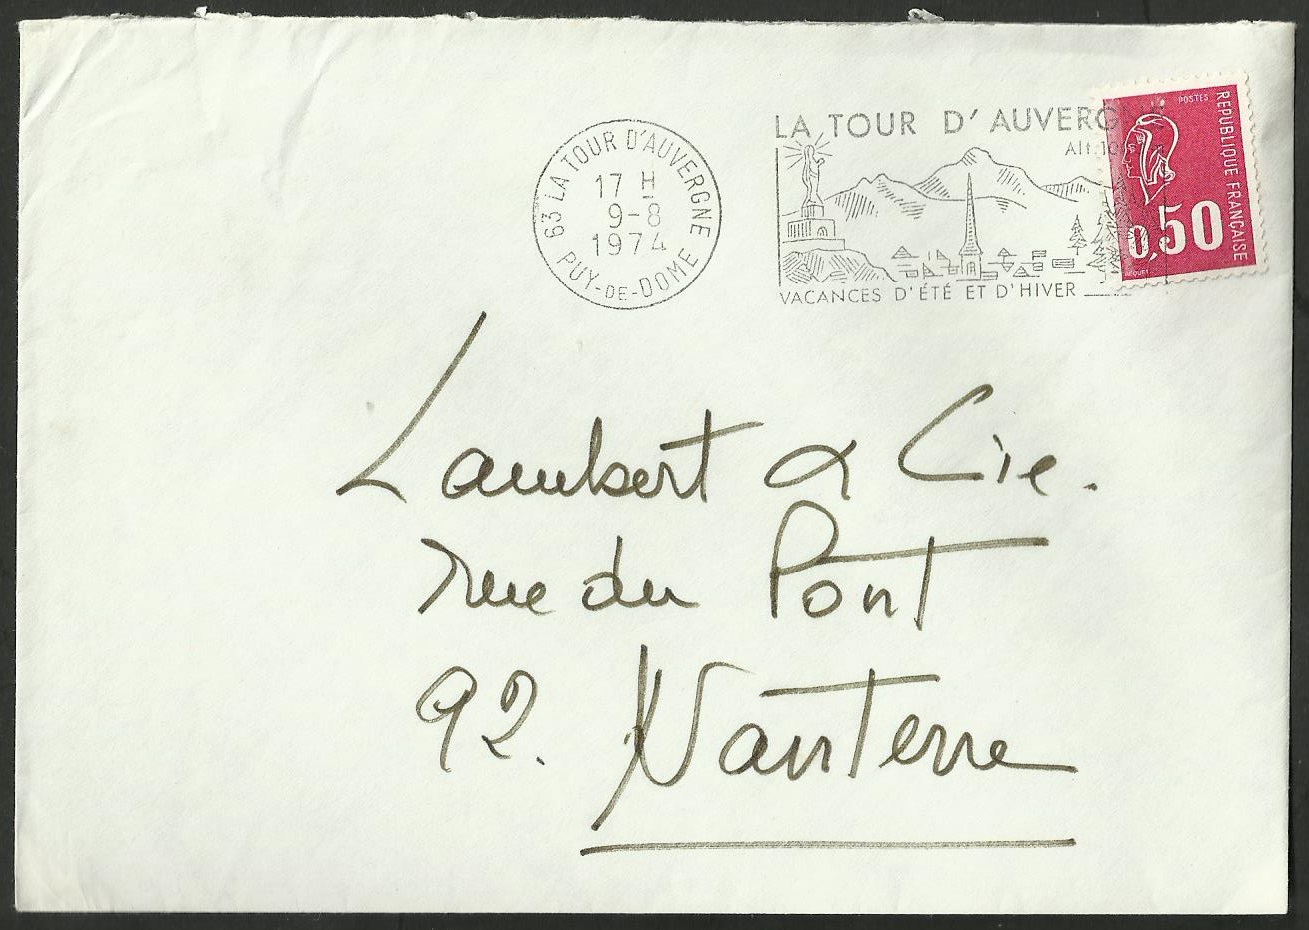 63 LA TOUR D'AUVERGNE
17 H
9-8
1974
PUY-DE-DOME
LA TOUR D'AUVERGNE
Alt.
VACANCES D'ÉTÉ ET D'HIVER
POSTES
REPUBLIQUE FRANÇAISE
0,50
Lambert & Cie.
rue du Pont
92. Nanterre